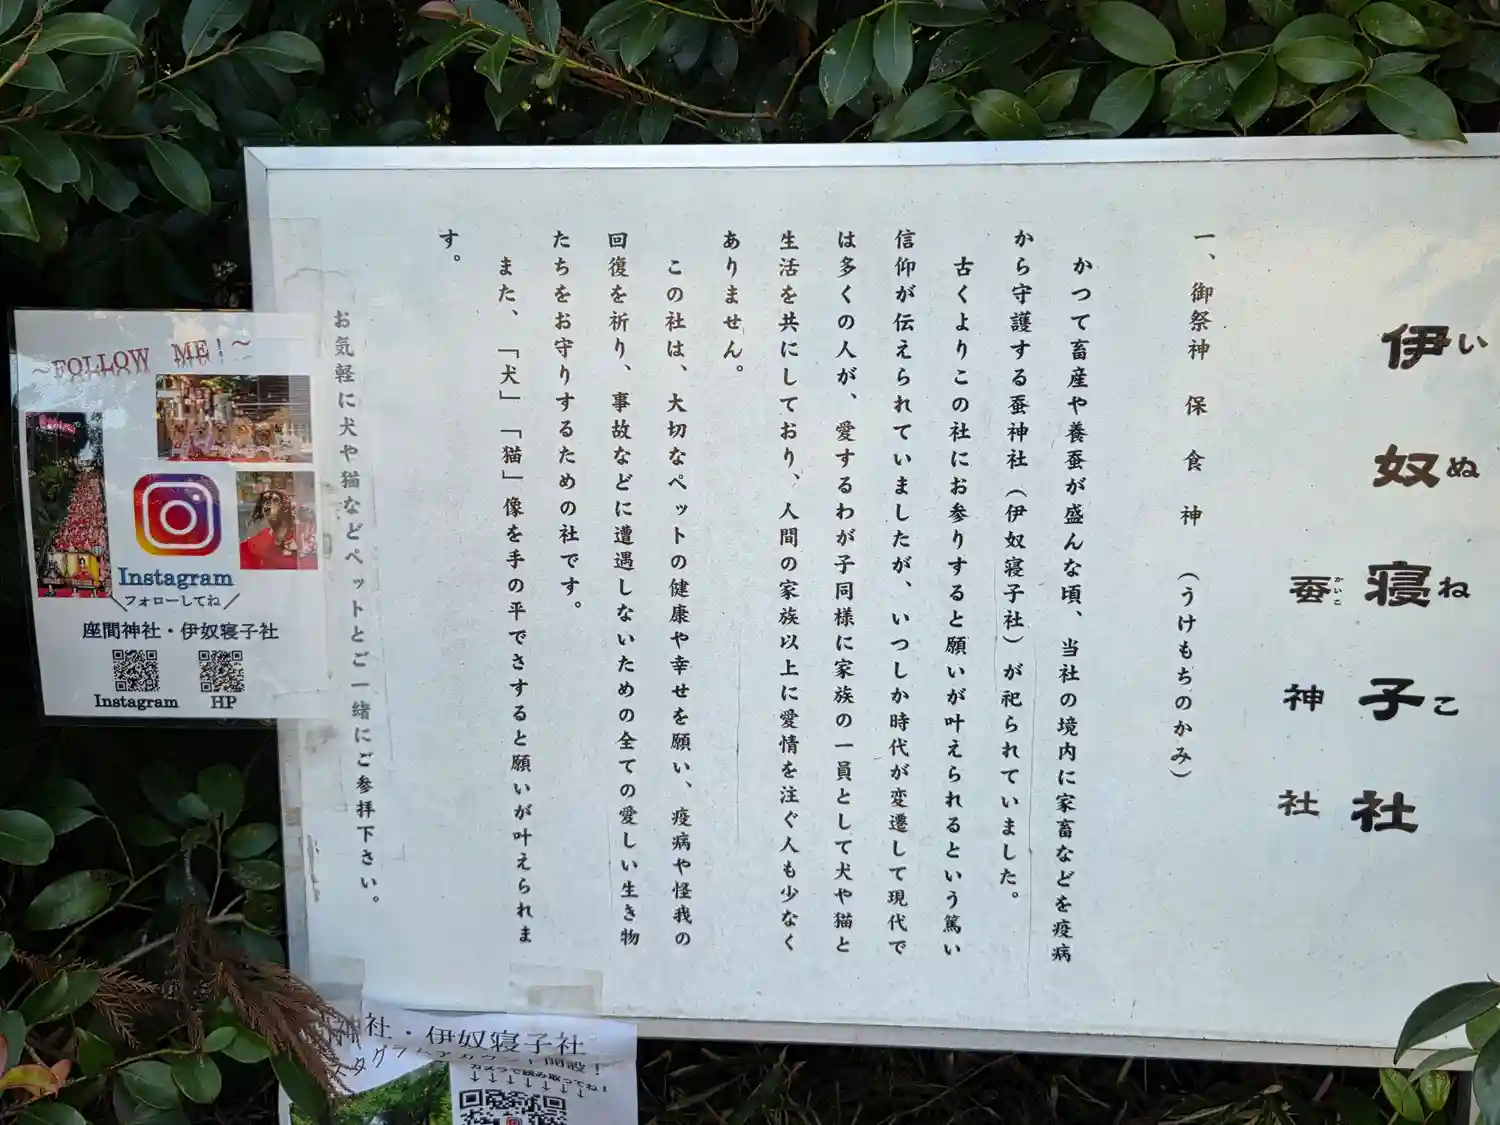 伊奴寝子社
いぬねこ
蚕神社
かいこ
一、御祭神 保食神 (うけもちのかみ)
かつて畜産や養蚕が盛んな頃、当社の境内に家畜などを疫病
から守護する蚕神社(伊奴寝子社)が祀られていました。
古くよりこの社にお参りすると願いが叶えられるという篤い
信仰が伝えられていましたが、いつしか時代が変遷して現代で
は多くの人が、愛するわが子同様に家族の一員として犬や猫と
生活を共にしており、人間の家族以上に愛情を注ぐ人も少なく
ありません。
この社は、大切なペットの健康や幸せを願い、疫病や怪我の
回復を祈り、事故などに遭遇しないための全ての愛しい生き物
たちをお守りするための社です。
また、「犬」「猫」像を手の平でさすると願いが叶えられま
す。
お気軽に犬や猫などペットとご一緒にご参拝下さい。
~FOLLOW ME!~
Instagram
\フォローしてね/
座間神社・伊奴寝子社
Instagram HP
神社・伊奴寝子社
スタグラムアカウント開設!
カメラで読み取ってね!
↓↓↓↓↓↓↓